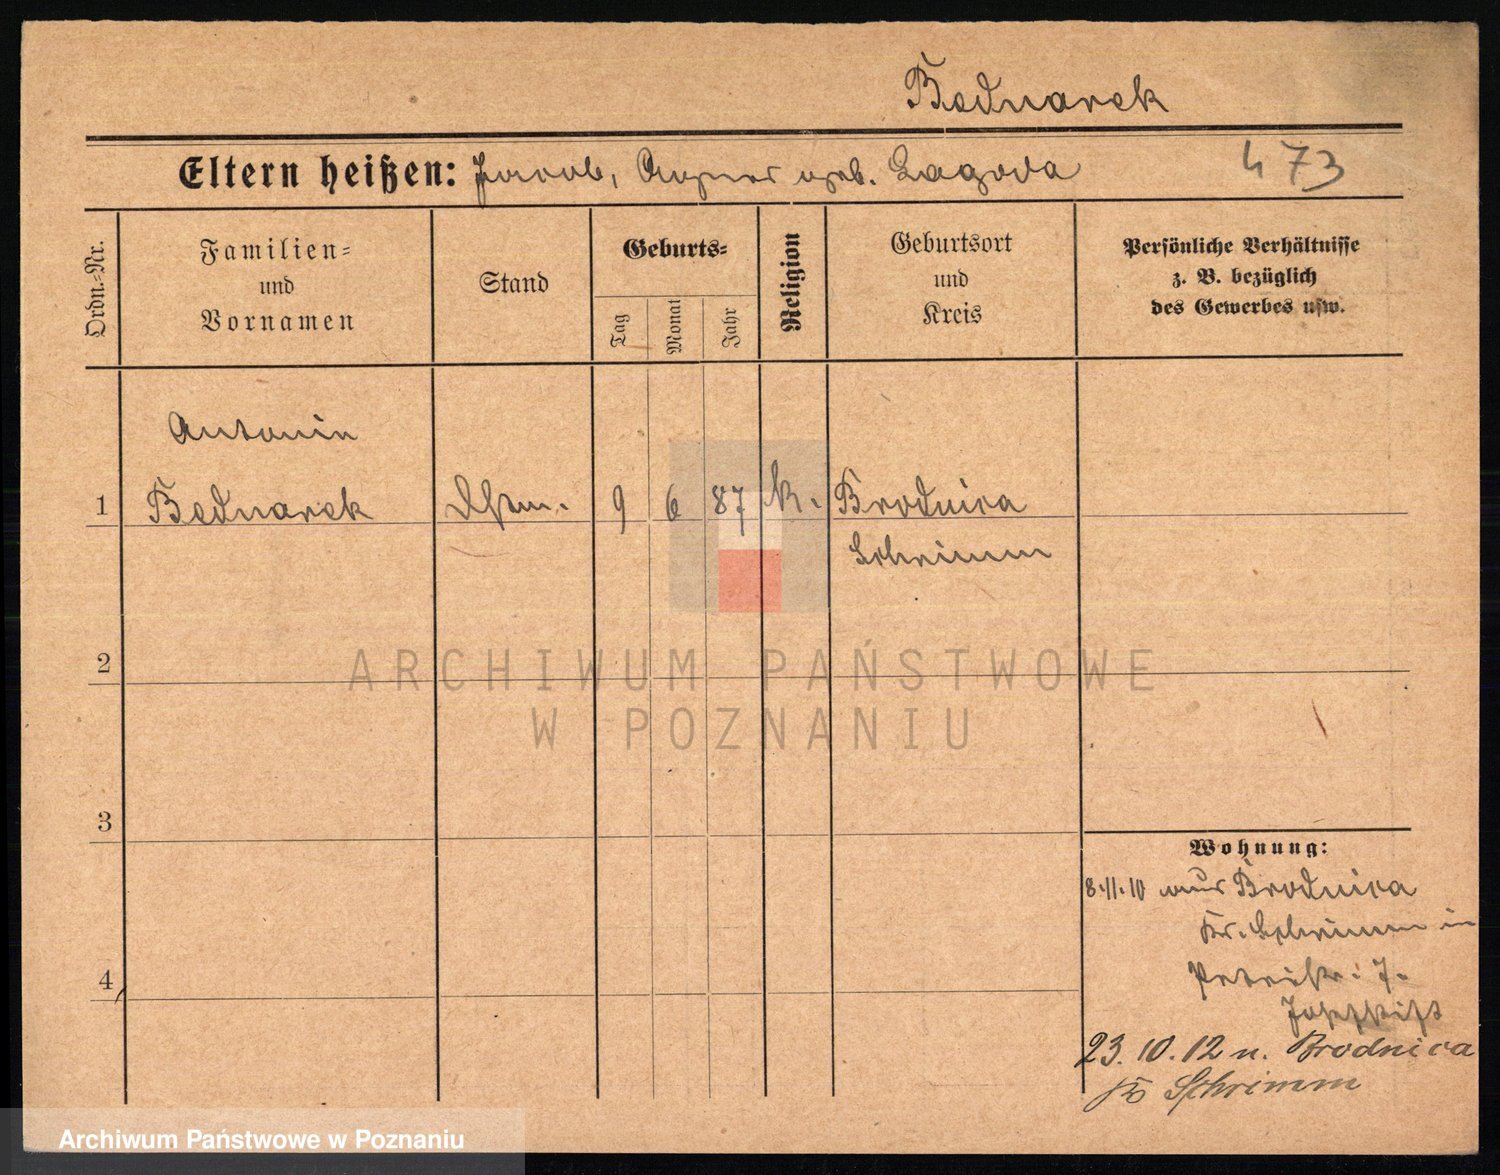 Bednarek
Eltern heißen: Jacob, Agnes geb. Lagoda
473
Ordn.-Nr.
Familien=
und
Vornamen
Stand
Geburts=
Tag
Monat
Jahr
Religion
Geburtsort
und
Kreis
Persönliche Verhältnisse
z. B. bezüglich
des Gewerbes usw.
Antonin
1 Bednarek 9 6 87 k. Brodnica
Schrimm
2
3
4
Wohnung:
8.11.10 aus Brodnica
Kr. Schrimm in
Petristr. 7.
Josefstift
23.10.12 n. Brodnica
Kr Schrimm
ARCHIWUM PAŃSTWOWE
W POZNANIU
Archiwum Państwowe w Poznaniu